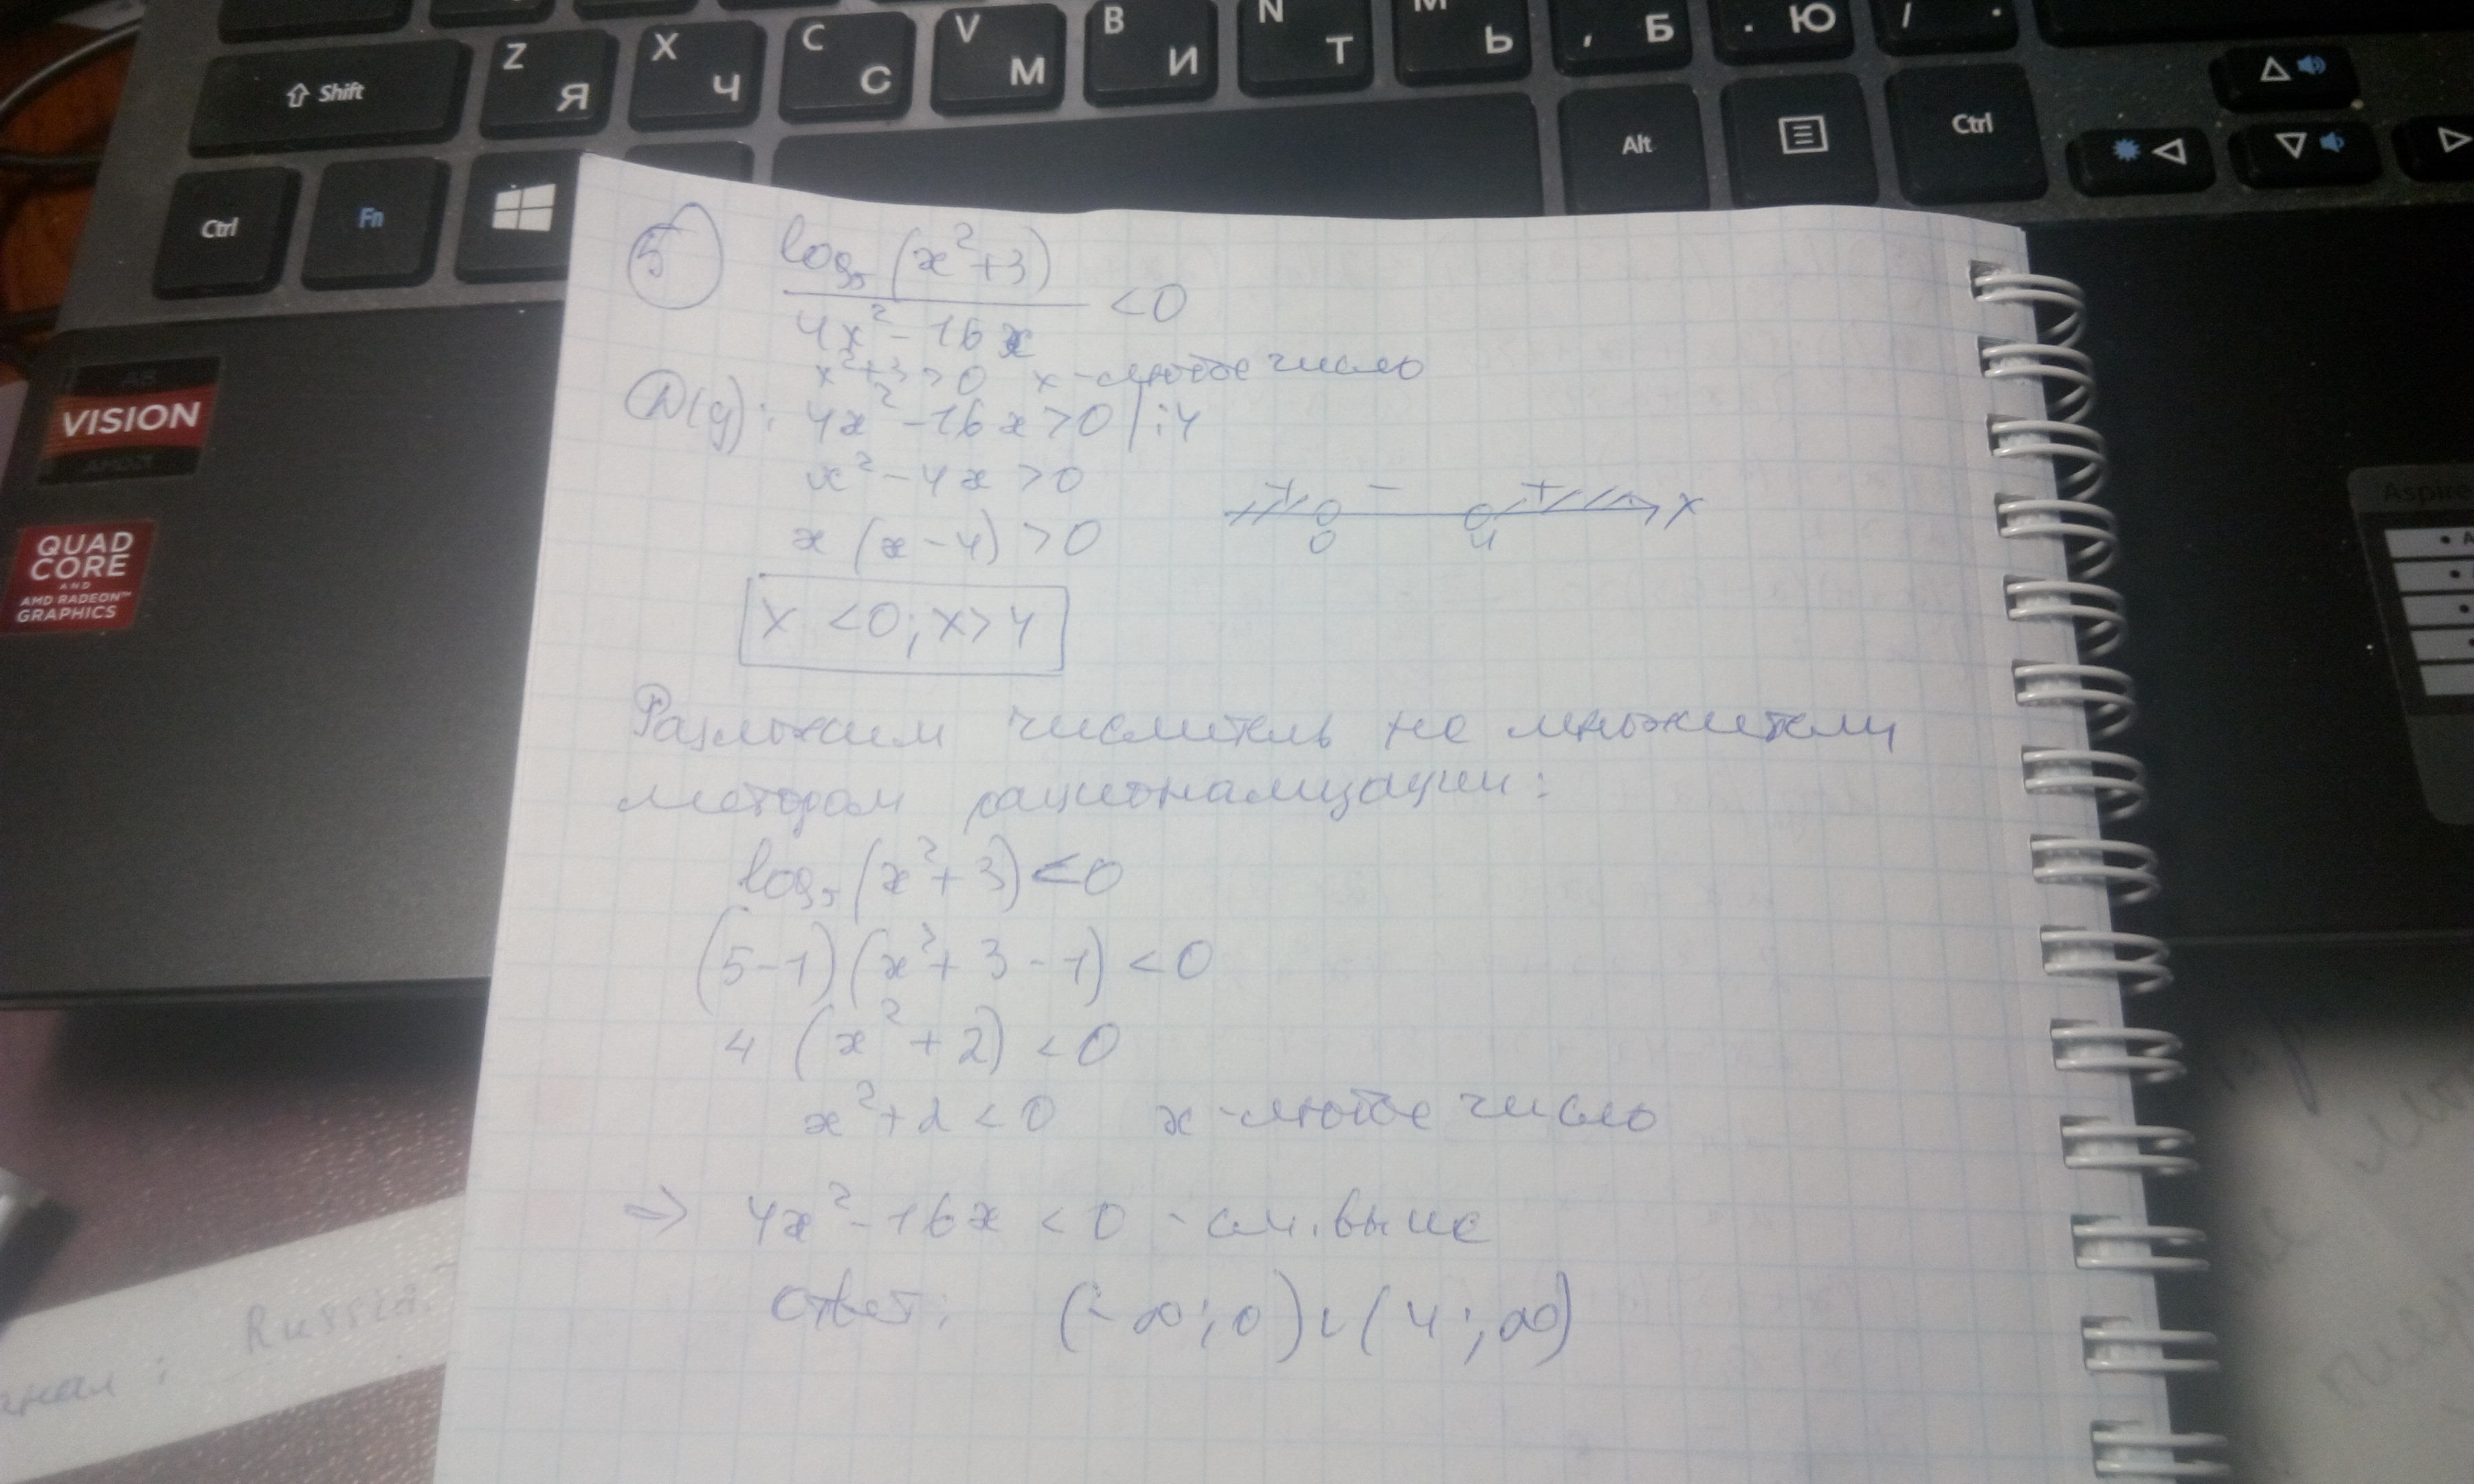 Z Я X Ч C С V М B И N Т M Ь , Б . Ю / .
⇧ Shift
Alt Ctrl
Ctrl Fn
VISION
AMD
QUAD
CORE
AND
AMD RADEON™
GRAPHICS
Aspire
5 log₅(x²+3)
4x²-16x < 0
x²+3>0 x-любое число
D(y): 4x²-16x>0 |:4
x²-4x>0
+ - + x
0 4
x(x-4)>0
x<0; x>4
Разложим числитель на множители
методом рационализации:
log₅(x²+3)<0
(5-1)(x²+3-1)<0
4(x²+2)<0
x²+2<0 x-любое число
⇒ 4x²-16x<0 - см. выше
Ответ: (-∞;0)∪(4;∞)
Russia